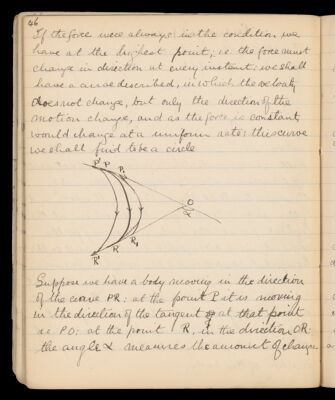 46
If the force were always in the condition we
have at the highest point, ie the force must
change in direction at every instant: we shall
have a curve described, in which the velocity
does not change, but only the direction of the
motion change, and as the force is constant
would change at a uniform rate: this curve
we shall find to be a circle
P' P P₁
O
α
R' R R₁
Suppose we have a body moving in the direction
of the curve PR: at the point P it is moving
in the direction of the tangent at that point
ie PO: at the point R, in the direction OR:
the angle α measures the amount of change